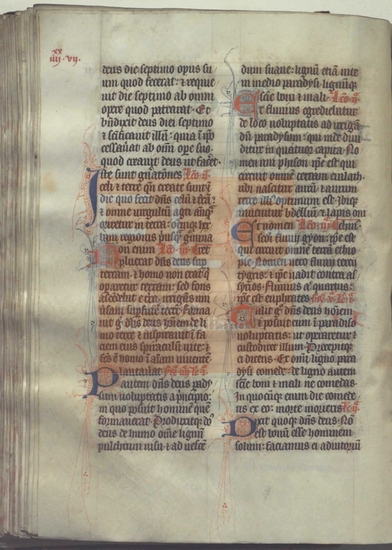 deus die septimo opus su
um quod fecerat: & requie
uit die septimo ab omni
opere quod patrarat. Et
bn̄dixit diei septimo
& sc̄ificauit illū: quia ī ip̄o
cessauerat ab om̄i ope suo
quod creauit deus ut facēt
Iste sunt gn̄atōnes
celi & terre
die quo fecit dn̄s celū & tr̄ā:
& omne uirgultū agri
oreretur in terra: oēmq; her
bam regionis
Non enim
pluerat dn̄s deus sup
terram: & homo non erat q̄
operaret terram: sed fons
ascēdebat e terra irrigās um
uersā supficiē terre. Forma
uit g̅ dn̄s deus hoīem de li
mo terre & inspirauit ī fa
ciem eius spiraculū uite: &
fc̄s ē homo ī aīam uiuentē.
Plantauerat
autem dn̄s deus pady
sum uoluptatis a p̄ncipio:
in quo posuit hominē quē
formauerat. Produxitq; dn̄s
deus de humo om̄e lignū
pulchrum uisu & ad uescē
dum suaue: lignū etiā uite
in medio paradysi: lignūq;
sc̄ie boni & mali.
Et fluuius egrediebatur
de loco uoluptatis ad irrigā
dū paradysum: qui inde diui
ditur in quatuor capita. No
men uni phison: ip̄e est qui
circuit omnē terram euilath:
ubi nascitur aurū: & aurum
terre illi9 optimum est: ibiq;
inuenitur bdelliū & lapis oni
Et nomen
scd̄i fluuii gyon: ip̄e est
qui circuit omnē terrā ethio
pie. Nomen uero fluuii tercii
tygris: ip̄e uadit contra as
syrios. Fluuius aūt quartus:
ip̄e est euphrates
Tulit g̅ dn̄s deus hoīem
& posuit eum ī paradiso
uoluptatis: ut operaretur &
custodiret illum. Precepitq;
ei dicens. Ex om̄i ligno para
dysi comede: de ligno autem
sc̄ie boni & mali ne comedas.
In quocūq; enim die comede
ris ex eo: morte morieris
Dixit quoq; dn̄s deus. No
est bonū esse hominem
solum: faciamus ei adiutoriū